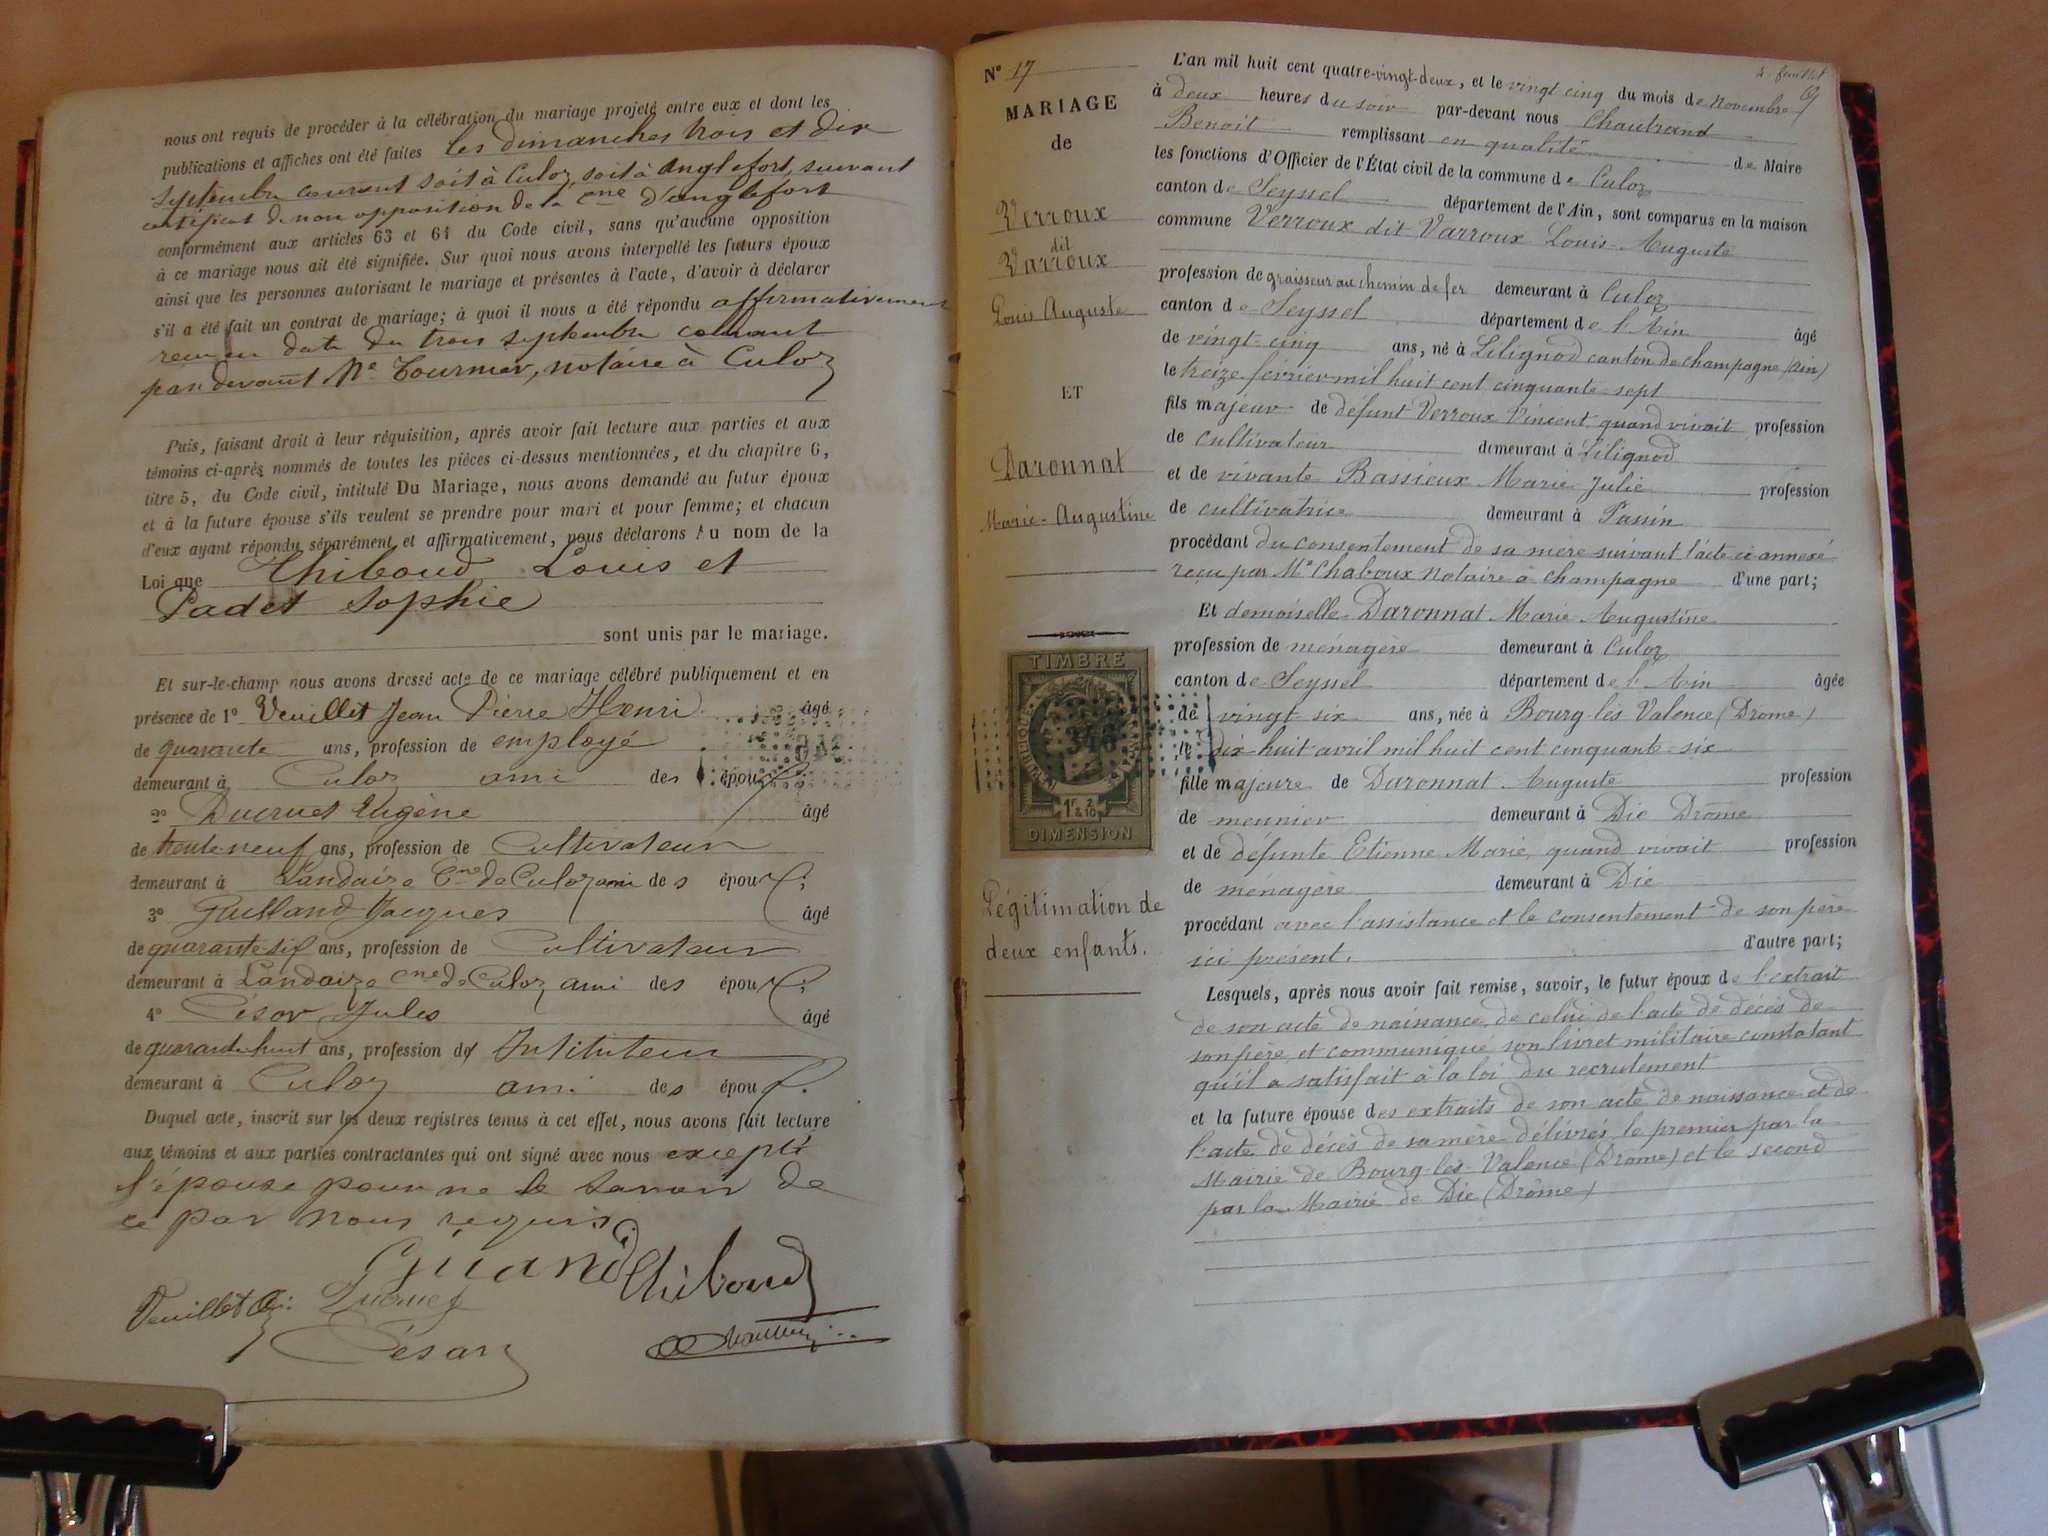 nous ont requis de procéder à la célébration du mariage projeté entre eux et dont les
publications et affiches ont été faites les dimanches trois et dix
septembre courant soit à Culoz, soit à Anglefort, suivant
certificat de non opposition de la Cne d'anglefort
conformément aux articles 63 et 64 du Code civil, sans qu'aucune opposition
à ce mariage nous ait été signifiée. Sur quoi nous avons interpellé les futurs époux
ainsi que les personnes autorisant le mariage et présentes à l'acte, d'avoir à déclarer
s'il a été fait un contrat de mariage; à quoi il nous a été répondu affirmativement
reçu en date du trois septembre courant
par devant Me Tournier, notaire à Culoz
Puis, faisant droit à leur réquisition, après avoir fait lecture aux parties et aux
témoins ci-après nommés de toutes les pièces ci-dessus mentionnées, et du chapitre 6,
titre 5, du Code civil, intitulé Du Mariage, nous avons demandé au futur époux
et à la future épouse s'ils veulent se prendre pour mari et pour femme; et chacun
d'eux ayant répondu séparément et affirmativement, nous déclarons Au nom de la
Loi que Thiboud Louis et
Padet Sophie
sont unis par le mariage.
Et sur-le-champ nous avons dressé acte de ce mariage célébré publiquement et en
présence de 1° Veuillet Jean Pierre Henri âgé
de quarante ans, profession de employé
demeurant à Culoz ami des époux
2° Ducruet Eugène âgé
de trente neuf ans, profession de Cultivateur
demeurant à Landaize Cne de Culoz ami des époux;
3° Guilland Jacques âgé
de quarante-six ans, profession de Cultivateur
demeurant à Landaize Cne de Culoz ami des époux;
4° César Jules âgé
de quarante huit ans, profession d' Instituteur
demeurant à Culoz ami des époux.
Duquel acte, inscrit sur les deux registres tenus à cet effet, nous avons fait lecture
aux témoins et aux parties contractantes qui ont signé avec nous excepté
l'épouse pour ne le savoir de
ce par nous requis.
Guilland Thiboud
Veuillet Ducruet
César
N° 17
MARIAGE
de
Verroux
dit
Varroux
Louis Auguste
ET
Daronnat
Marie-Augustine
TIMBRE
RÉPUBLIQUE FRANÇAISE
1F & 2/10
DIMENSION
Légitimation de
deux enfants.
69
L'an mil huit cent quatre-vingt-deux, et le vingt cinq du mois de novembre
à deux heures du soir par-devant nous Chautrand
Benoit remplissant en qualité de Maire
les fonctions d'Officier de l'État civil de la commune de Culoz
canton de Seyssel département de l'Ain, sont comparus en la maison
commune Verroux dit Varroux Louis-Auguste
profession de graisseur au chemin de fer demeurant à Culoz
canton de Seyssel département de l'Ain âgé
de vingt-cinq ans, né à Lilignod canton de champagne (Ain)
le treize février mil huit cent cinquante-sept
fils majeur de défunt Verroux Vincent quand vivait profession
de cultivateur demeurant à Lilignod
et de vivante Bassieux Marie Julie profession
de cultivatrice demeurant à Passin
procédant du consentement de sa mère suivant l'acte ci annexé
reçu par Me Chaboux notaire à champagne d'une part;
Et demoiselle Daronnat Marie Augustine
profession de ménagère demeurant à Culoz
canton de Seyssel département de l'Ain âgée
de vingt six ans, née à Bourg-lès-Valence (Drome)
le dix-huit avril mil huit cent cinquante-six
fille majeure de Daronnat Auguste profession
de meunier demeurant à Die Drôme
et de défunte Etienne Marie, quand vivait profession
de ménagère demeurant à Die
procédant avec l'assistance et le consentement de son père
ici présent. d'autre part;
Lesquels, après nous avoir fait remise, savoir, le futur époux de l'extrait
de son acte de naissance, de celui de l'acte de décès de
son père, et communiqué son livret militaire constatant
qu'il a satisfait à la loi du recrutement
et la future épouse des extraits de son acte de naissance et de
l'acte de décès de sa mère délivrés le premier par la
Mairie de Bourg-lès-Valence (Drôme) et le second
par la Mairie de Die (Drôme)